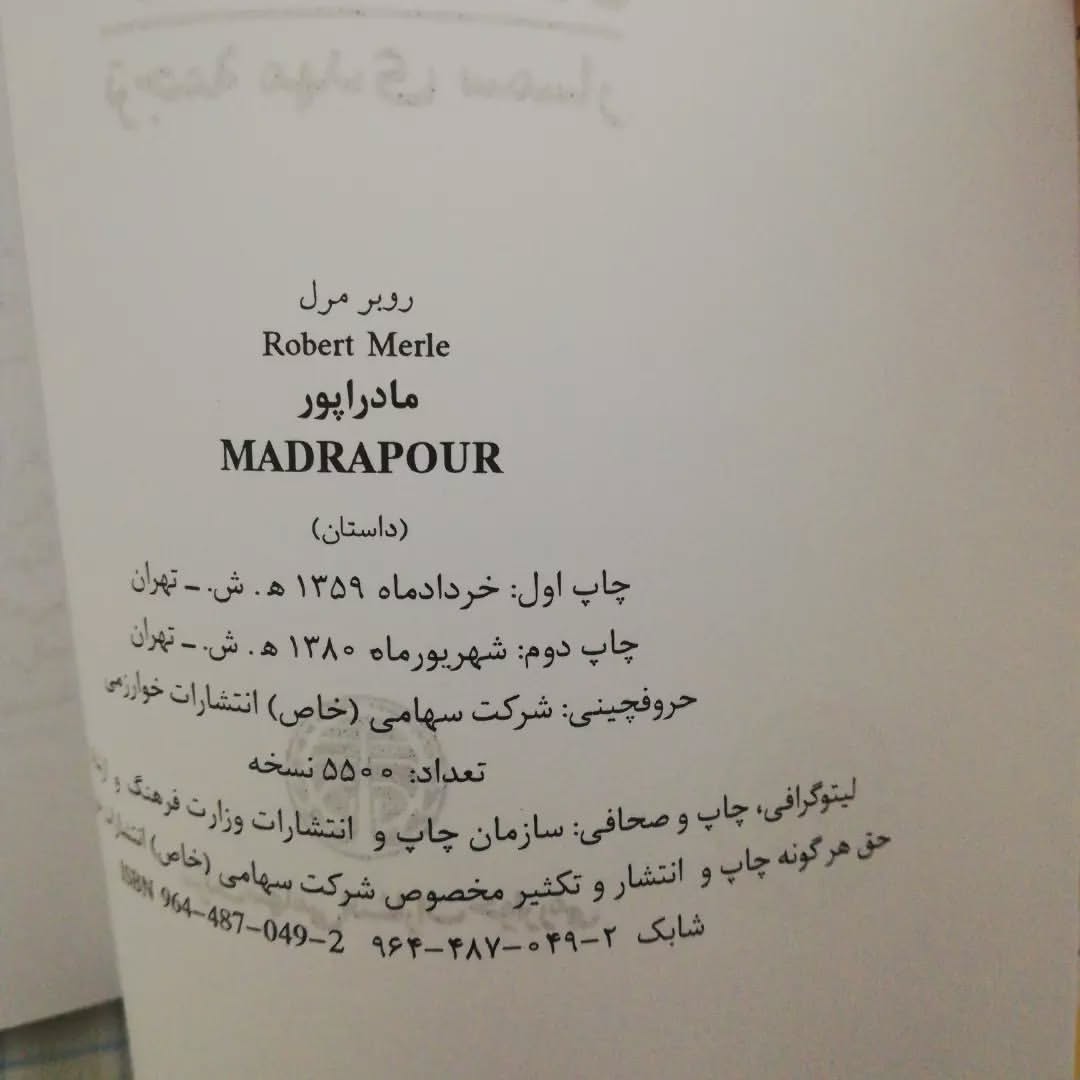 ترجمهٔ مهدی سمسار
روبر مرل
Robert Merle
مادراپور
MADRAPOUR
(داستان)
چاپ اول: خردادماه ۱۳۵۹ ه‍. ش. ـ تهران
چاپ دوم: شهریورماه ۱۳۸۰ ه‍. ش. ـ تهران
حروفچینی: شرکت سهامی (خاص) انتشارات خوارزمی
تعداد: ۵۵۰۰ نسخه
لیتوگرافی، چاپ و صحافی: سازمان چاپ و انتشارات وزارت فرهنگ و
حق هرگونه چاپ و انتشار و تکثیر مخصوص شرکت سهامی (خاص)
شابک ۲-۰۴۹-۴۸۷-۹۶۴ ISBN 964-487-049-2